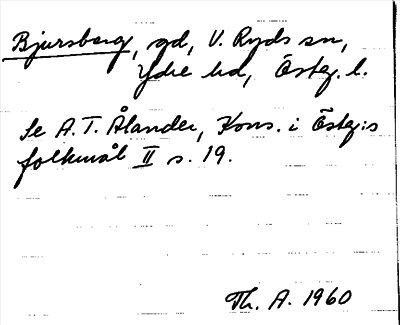 Bjursberg, gd, V. Ryds sn,
Ydre hd, Östg. l.
Se A. T. Ålander, Kons. i Östg:s
folkmål II s. 19.
Th. A. 1960